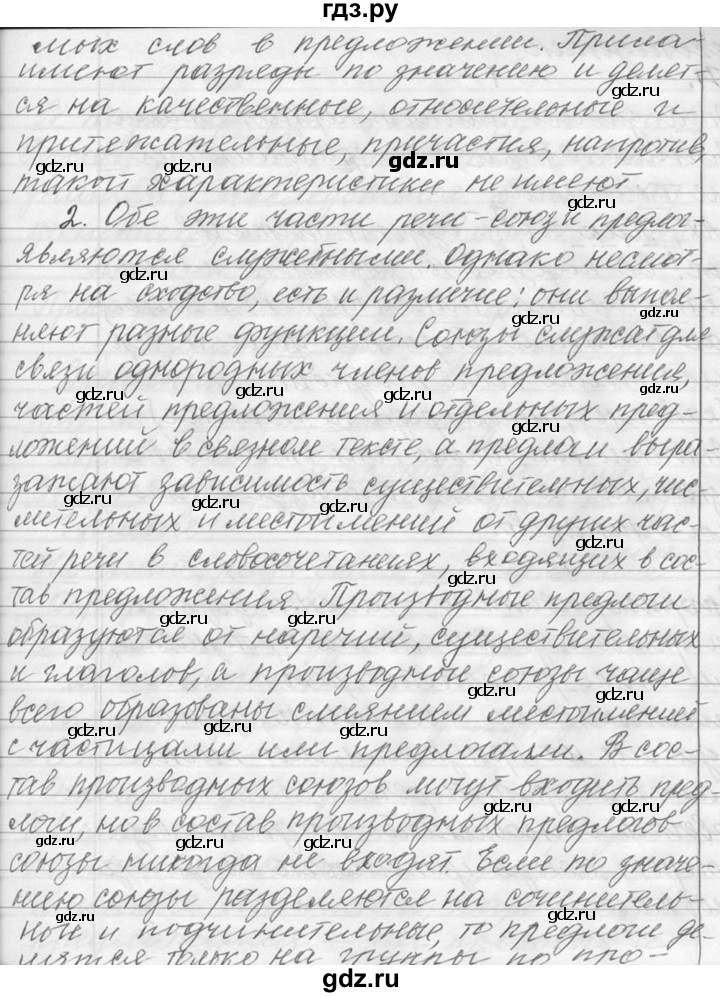 гдз.ру
мых слов в предложении. Прила-
имеют разряды по значению и делят-
ся на качественные, относительные и
притяжательные, причастия, напротив,
такой характеристики не имеют.
2. Обе эти части речи - союз и предлог-
являются служебными. Однако несмот-
ря на сходство, есть и различие: они выпол-
няют разные функции. Союзы служат для
связи однородных членов предложения,
частей предложения и отдельных пред-
ложений в связном тексте, а предлоги выра-
жают зависимость существительных, чис-
лительных и местоимений от других час-
тей речи в словосочетаниях, входящих в сос-
тав предложения. Производные предлоги
образуются от наречий, существительных
и глаголов, а производные союзы чаще
всего образованы слиянием местоимений
с частицами или предлогами. В сос-
тав производных союзов могут входить пред-
логи, но в состав производных предлогов
союзы никогда не входят. Если по значе-
нию союзы разделяются на сочинитель-
ные и подчинительные, то предлоги де-
лятся только на группы по про-
gdz.ru